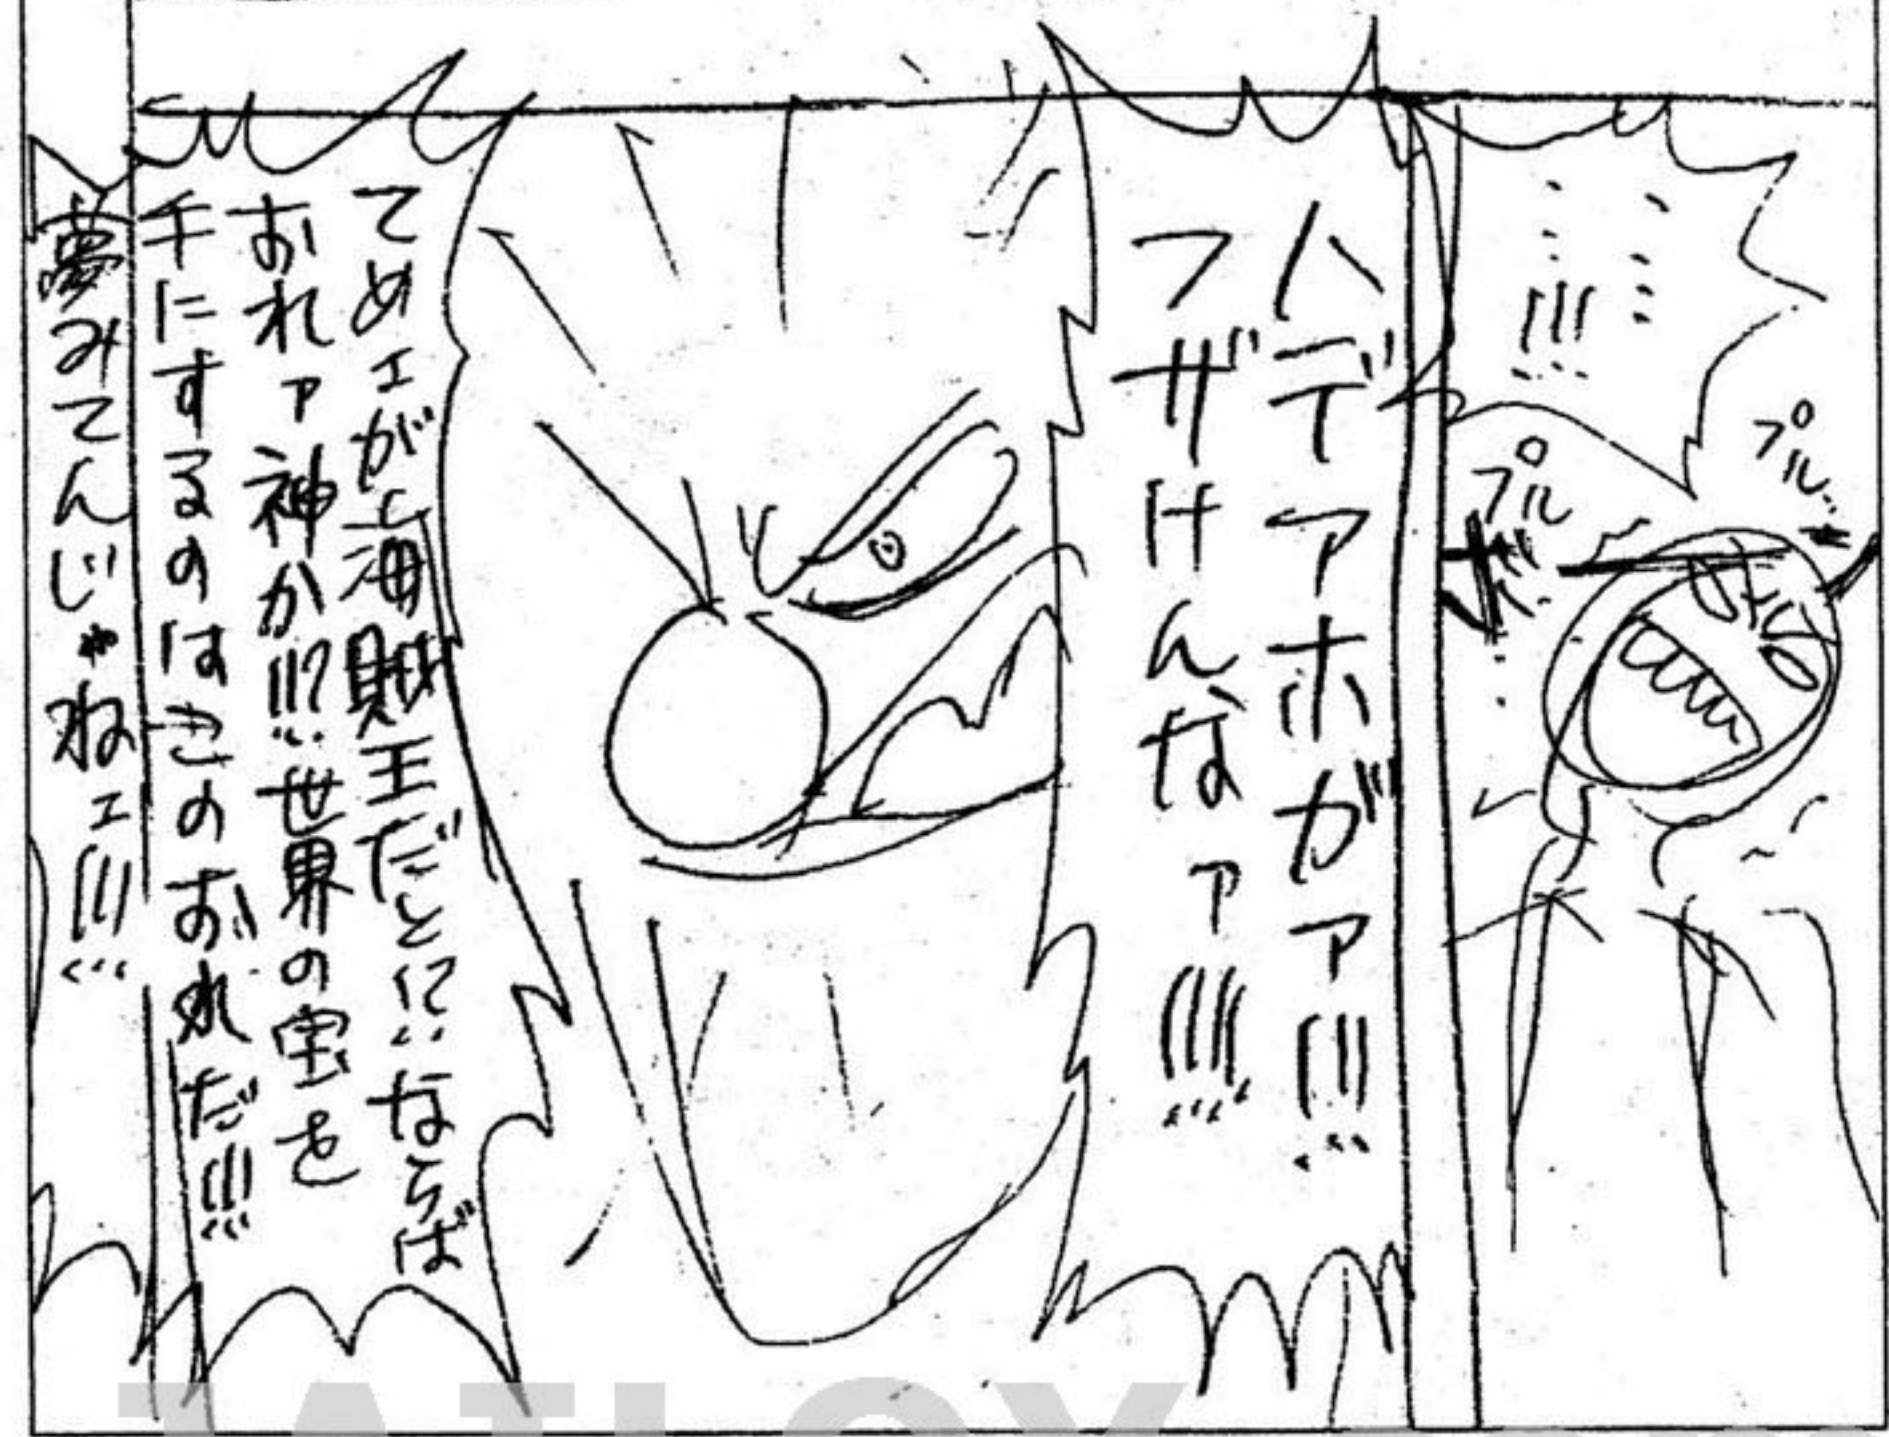 ……!!!
プル
プル
ハデアホがァ!!!
フザけんなァ!!!!
てめェが海賊王だと!?ならば
おれァ神か!!?世界の宝を
手にするのはこのおれだ!!!
夢みてんじゃねェ!!!